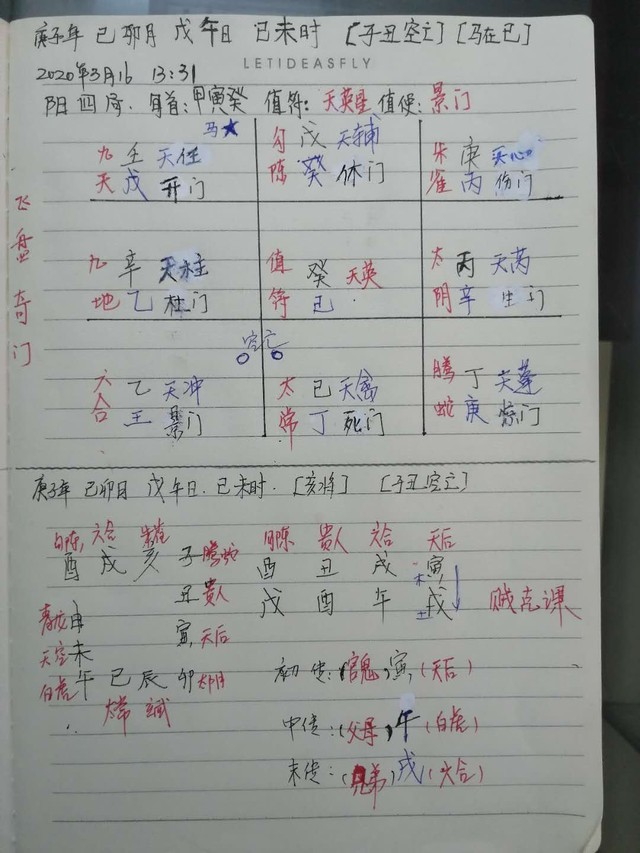 庚子年 己卯月 戊午日 己未时 [子丑空亡] [马在巳]
LETIDEASFLY
2020年3月16 13:31
阳四局. 旬首:甲寅癸 值符: 天英星 值使: 景门
飞盘奇门
马★
九 壬 天任 勾 戊 天辅 朱 庚 天心
天 戊 开门 陈 癸 休门 雀 丙 伤门
九 辛 天柱 值 癸 天英 太 丙 天芮
地 乙 杜门 符 己 阴 辛 生门
空亡
六 乙 天冲 太 己 天禽 腾 丁 天蓬
合 壬 景门 常 丁 死门 蛇 庚 惊门
庚子年 己卯月 戊午日. 己未时. [亥将] [子丑空亡]
勾陈. 六合 朱雀 勾陈 贵人 六合 天后
酉 戌 亥 子 腾蛇 酉 丑 戌 寅,
丑 贵人 戊 酉 午 戌 贼克课
木
土
青龙 申 寅, 天后
天空 未
白虎 午 巳 辰 卯 太阴
太常
初传: (官鬼) 寅, (天后)
中传: (父母) 午 (白虎)
末传: (兄弟) 戌 (六合)